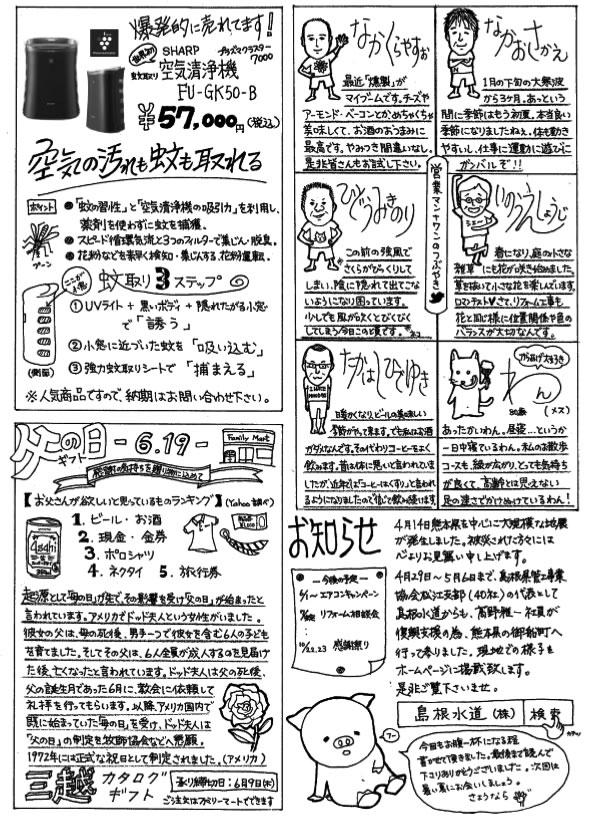 爆発的に売れてます!
世界初
蚊取り
SHARP
プラズマクラスター
7000
空気清浄機
FU-GK50-B
¥57,000円(税込)
空気の汚れも蚊も取れる
ポイント
プーン
●「蚊の習性」と「空気清浄機の吸引力」を利用し、
薬剤を使わずに蚊を捕獲。
●スピード循環気流と3つのフィルターで集じん・脱臭。
●花粉などを素早く検知・集じんする、花粉運転。
蚊取り3ステップ
(側面)
①UVライト+黒いボディ+隠れたがる小窓
で「誘う」
②小窓に近づいた蚊を「吸い込む」
③強力蚊取りシートで「捕まえる」
※人気商品ですので、納期はお問い合わせ下さい。
父の日
ギフト
-6.19-
Family Mart
感謝の気持ちを贈り物に込めて
【お父さんが欲しいと思っているものランキング】(Yahoo調べ)
Asahi
1. ビール・お酒
2. 現金・金券
3. ポロシャツ
4. ネクタイ 5. 旅行券
起源として「母の日」が先で、その影響を受け「父の日」が始まったと
言われています。アメリカでドッド夫人という女が生がいました。
彼女の父は、母の死後、男手一つで彼女を含む6人の子ども
を育てました。そしてその父は、6人全員が成人するのを見届け
た後、亡くなったと言われています。ドッド夫人は父の死後、
父の誕生月であった6月に、教会に依頼して
礼拝を行ってもらいます。以降、アメリカ国内で
既に始まっていた「母の日」を受け、ドッド夫人は
「父の日」の制定を牧師協会などへ懇願。
1972年には正式な祝日として制定されました。(アメリカ)
三越
カタログ
ギフト
承り締切日:6月9日(木)
ご注文はファミリーマートでできます
なかくらやすお
最近「燻製」が
マイブームです。チーズや
アーモンド・ベーコンとか、めちゃくちゃ
美味しくて、お酒のおつまみに
最高です。やみつき間違いなし。
是非皆さんもお試し下さい。
なかおさかえ
1月の下旬の大寒波
から3ヶ月。あっという
間に季節はもう初夏。本当良い
季節になりましたねぇ。体も動き
やすいし、仕事に運動に遊びに
ガンバルぞ!!
営業マンナワンのつぶやき
ひどうみのり
この前の強風で
さくらがびっくりして
しまい、陰に隠れて出てこな
いようになり困っています。
少しでも風が吹くとびくびく
してしまう今日この頃です。
いのうえしょうじ
春になり、庭の小さな
雑草にも花が咲き始めました。
草を抜いて小さな花を楽しんでいます。
ロマンチスト♥さて、リフォーム工事も
花と同じ様に位置関係や色の
バランスが大切なんです。
たかはしひでゆき
暖かくなり、ビールの美味しい
季節がやって来ます。でも私はお酒
がダメなんです。その代わりコーヒーをよく
飲みます。昔は体に悪いと言われていま
したが、近年ではコーヒーはくすり、と言われ
るようになりましたので信じて飲み続います。
からあげ大好き
わん
80歳
(メス)
あったかいわん。昼寝…というか
一日中寝ているわん。私のお散歩
コースも、緑が広がり、とっても気持ち
が良くて、高齢とは思えない
足の速さでかけぬけているわん!
お知らせ
4月14日熊本県を中心に大規模な地震
が発生しました。被災された方々には
心よりお見舞い申し上げます。
4月29日〜5月6日まで、島根県管工事業
協会松江支部(40社)の代表として
島根水道からも、高野雅一社員が
復興支援の為、熊本県の御船町へ
行って参りました。現地での様子を
ホームページに掲載致します。
是非ご覧下さいませ。
―今後の予定―
エアコンキャンペーン
リフォーム相談会
感謝祭り
島根水道(株) 検索
カチッ
今日もお腹一杯になる程
書かせて頂きました。最後まで読んで
下さりありがとうございました。次回は
暑い夏にお会いしましょう。
さようなら